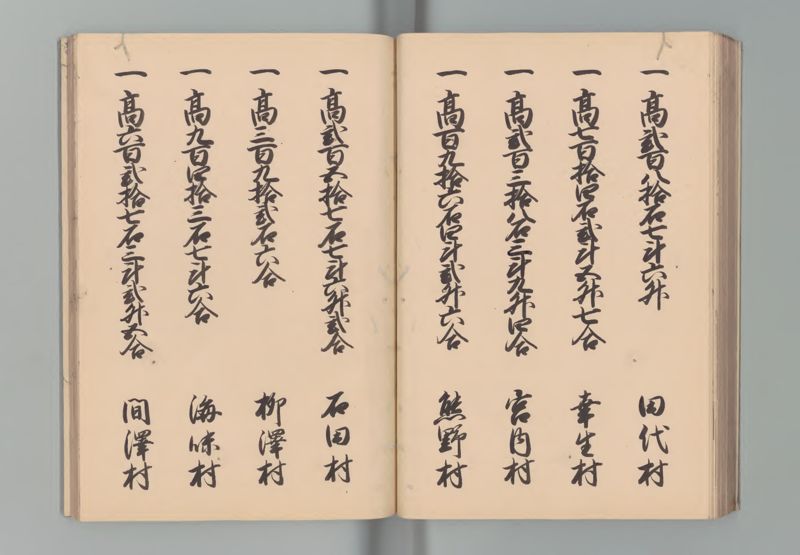 一 高弐百八拾石七斗六升 田代村
一 高七百拾四石弐斗五升七合 幸生村
一 高弐百三拾八石三斗九升四合 宮内村
一 高百九拾六石四斗弐升六合 熊野村
一 高弐百五拾七石七斗六升弐合 石田村
一 高三百九拾弐石六合 柳澤村
一 高九百四拾三石七斗六合 海味村
一 高六百弐拾七石三斗弐升五合 間澤村